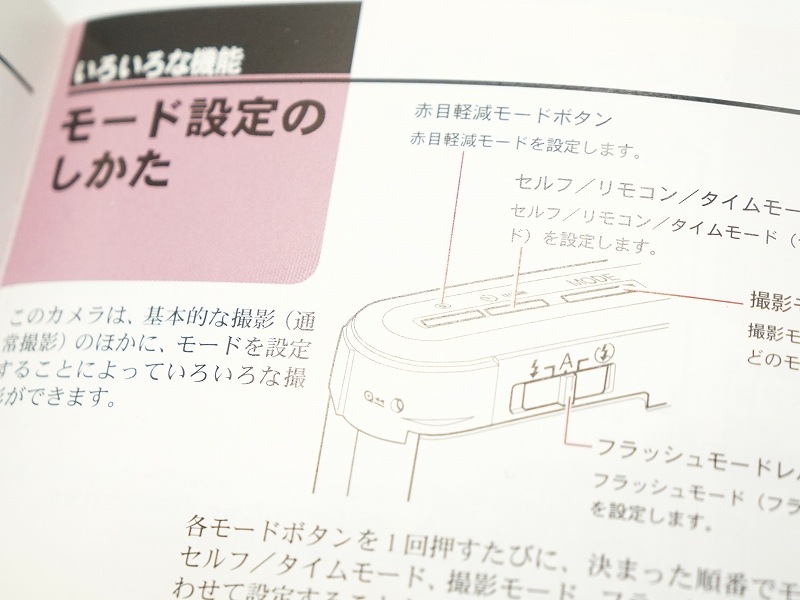 いろいろな機能
モード設定の
しかた
赤目軽減モードボタン
赤目軽減モードを設定します。
セルフ／リモコン／タイムモー
セルフ／リモコン／タイムモード（
ド）を設定します。
MODE
撮影モ
撮影モ
どのモ
A
このカメラは、基本的な撮影（通
常撮影）のほかに、モードを設定
することによっていろいろな撮
影ができます。
フラッシュモードレバ
フラッシュモード（フラ
を設定します。
各モードボタンを1回押すたびに、決まった順番でモ
セルフ／タイムモード、撮影モード、フラ
わせて設定すること